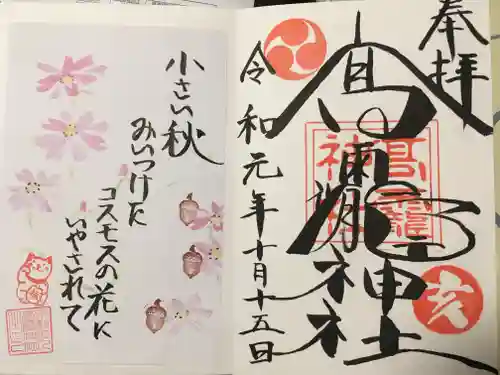 小さい秋
みいつけに
コスモスの花に
いやされて
奉拝
高
神社
高龗神社
亥
令和元年十月十五日